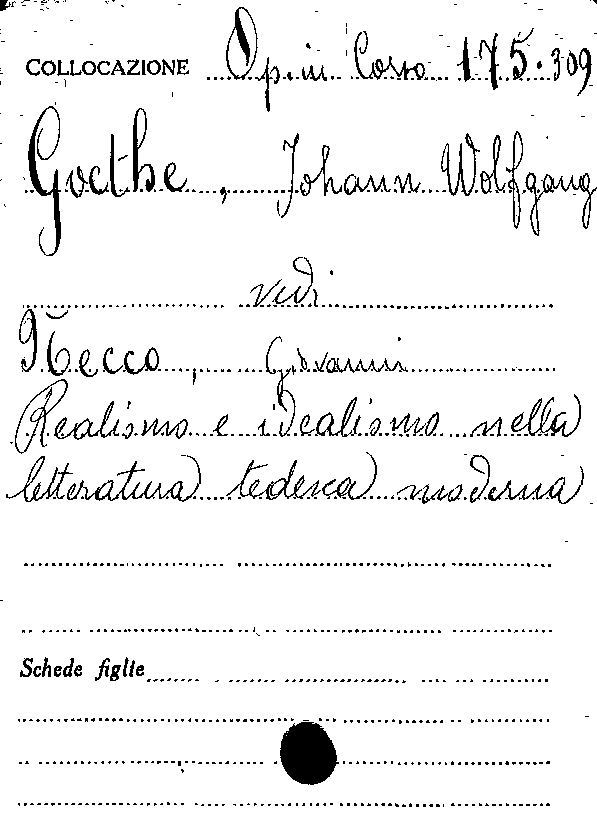 COLLOCAZIONE Op. in Corso 175.309
Goethe, Johann Wolfgang
vedi
Necco, Giovanni
Realismo e idealismo nella
letteratura tedesca moderna
Schede figlie